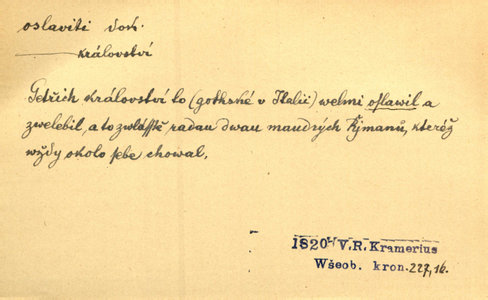 oslaviti dok.
království
Jetřich království to (gothské v Italii) welmi oslawil a
zwelebil, a to zwlásstě radau dwau maudrých Řjmanů, kteréž
wždy okolo sebe chowal.
1820 V.R. Kramerius
Wšeob. kron. 227, 16.